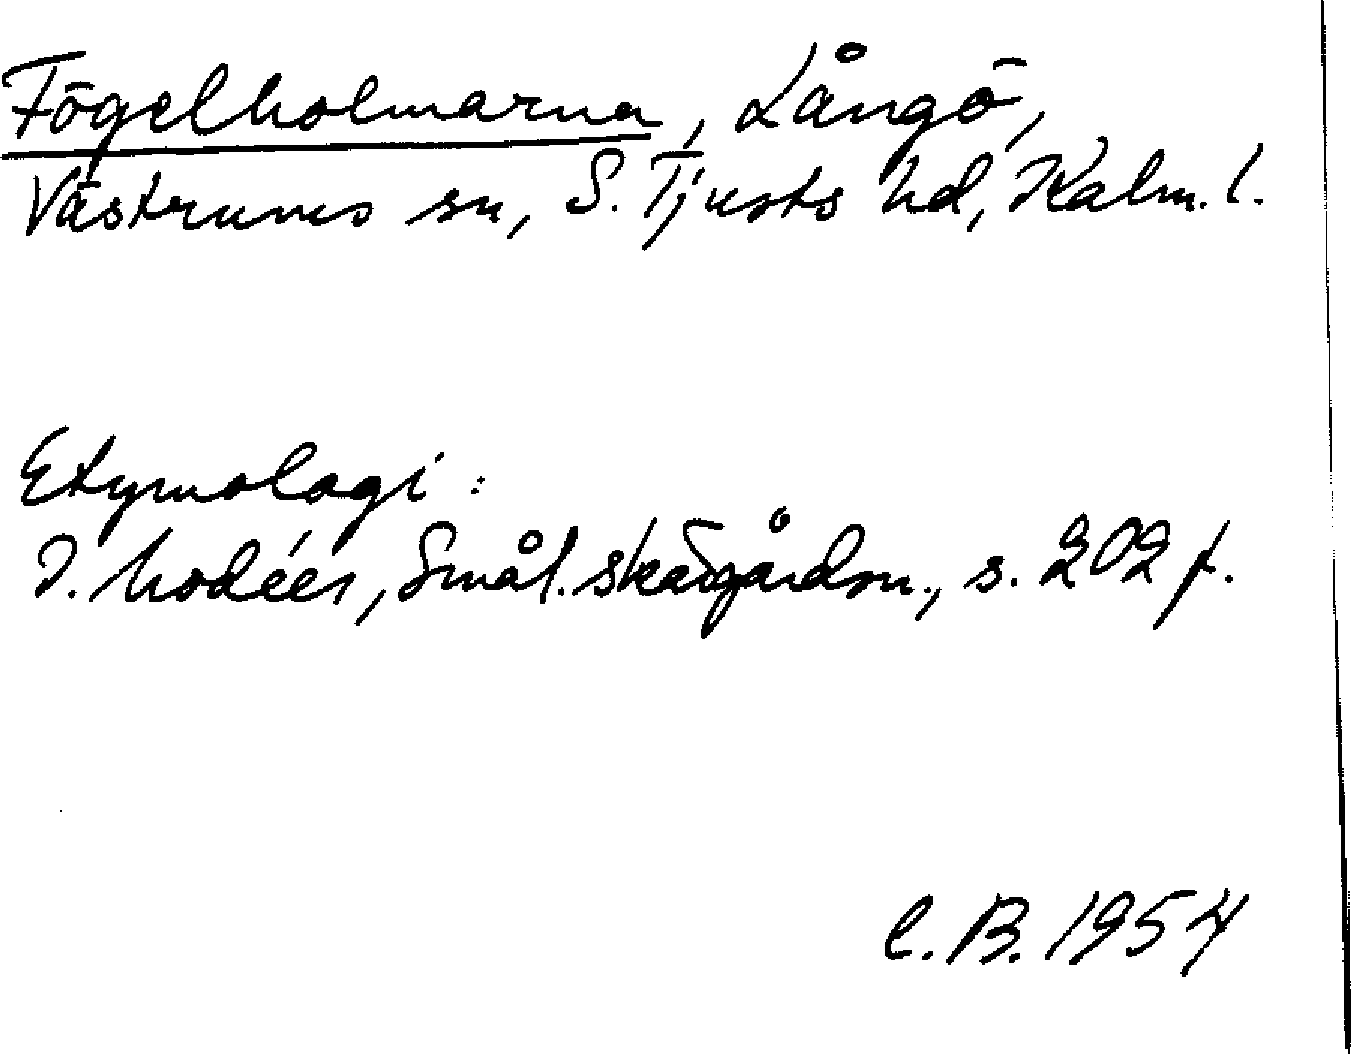 Fögelholmarna, Långö,
Västrums sn, S. Tjusts hd, Kalm. l.
Etymologi:
I. Modéer, Smål. skärgårdsn., s. 202 f.
C. B. 1954